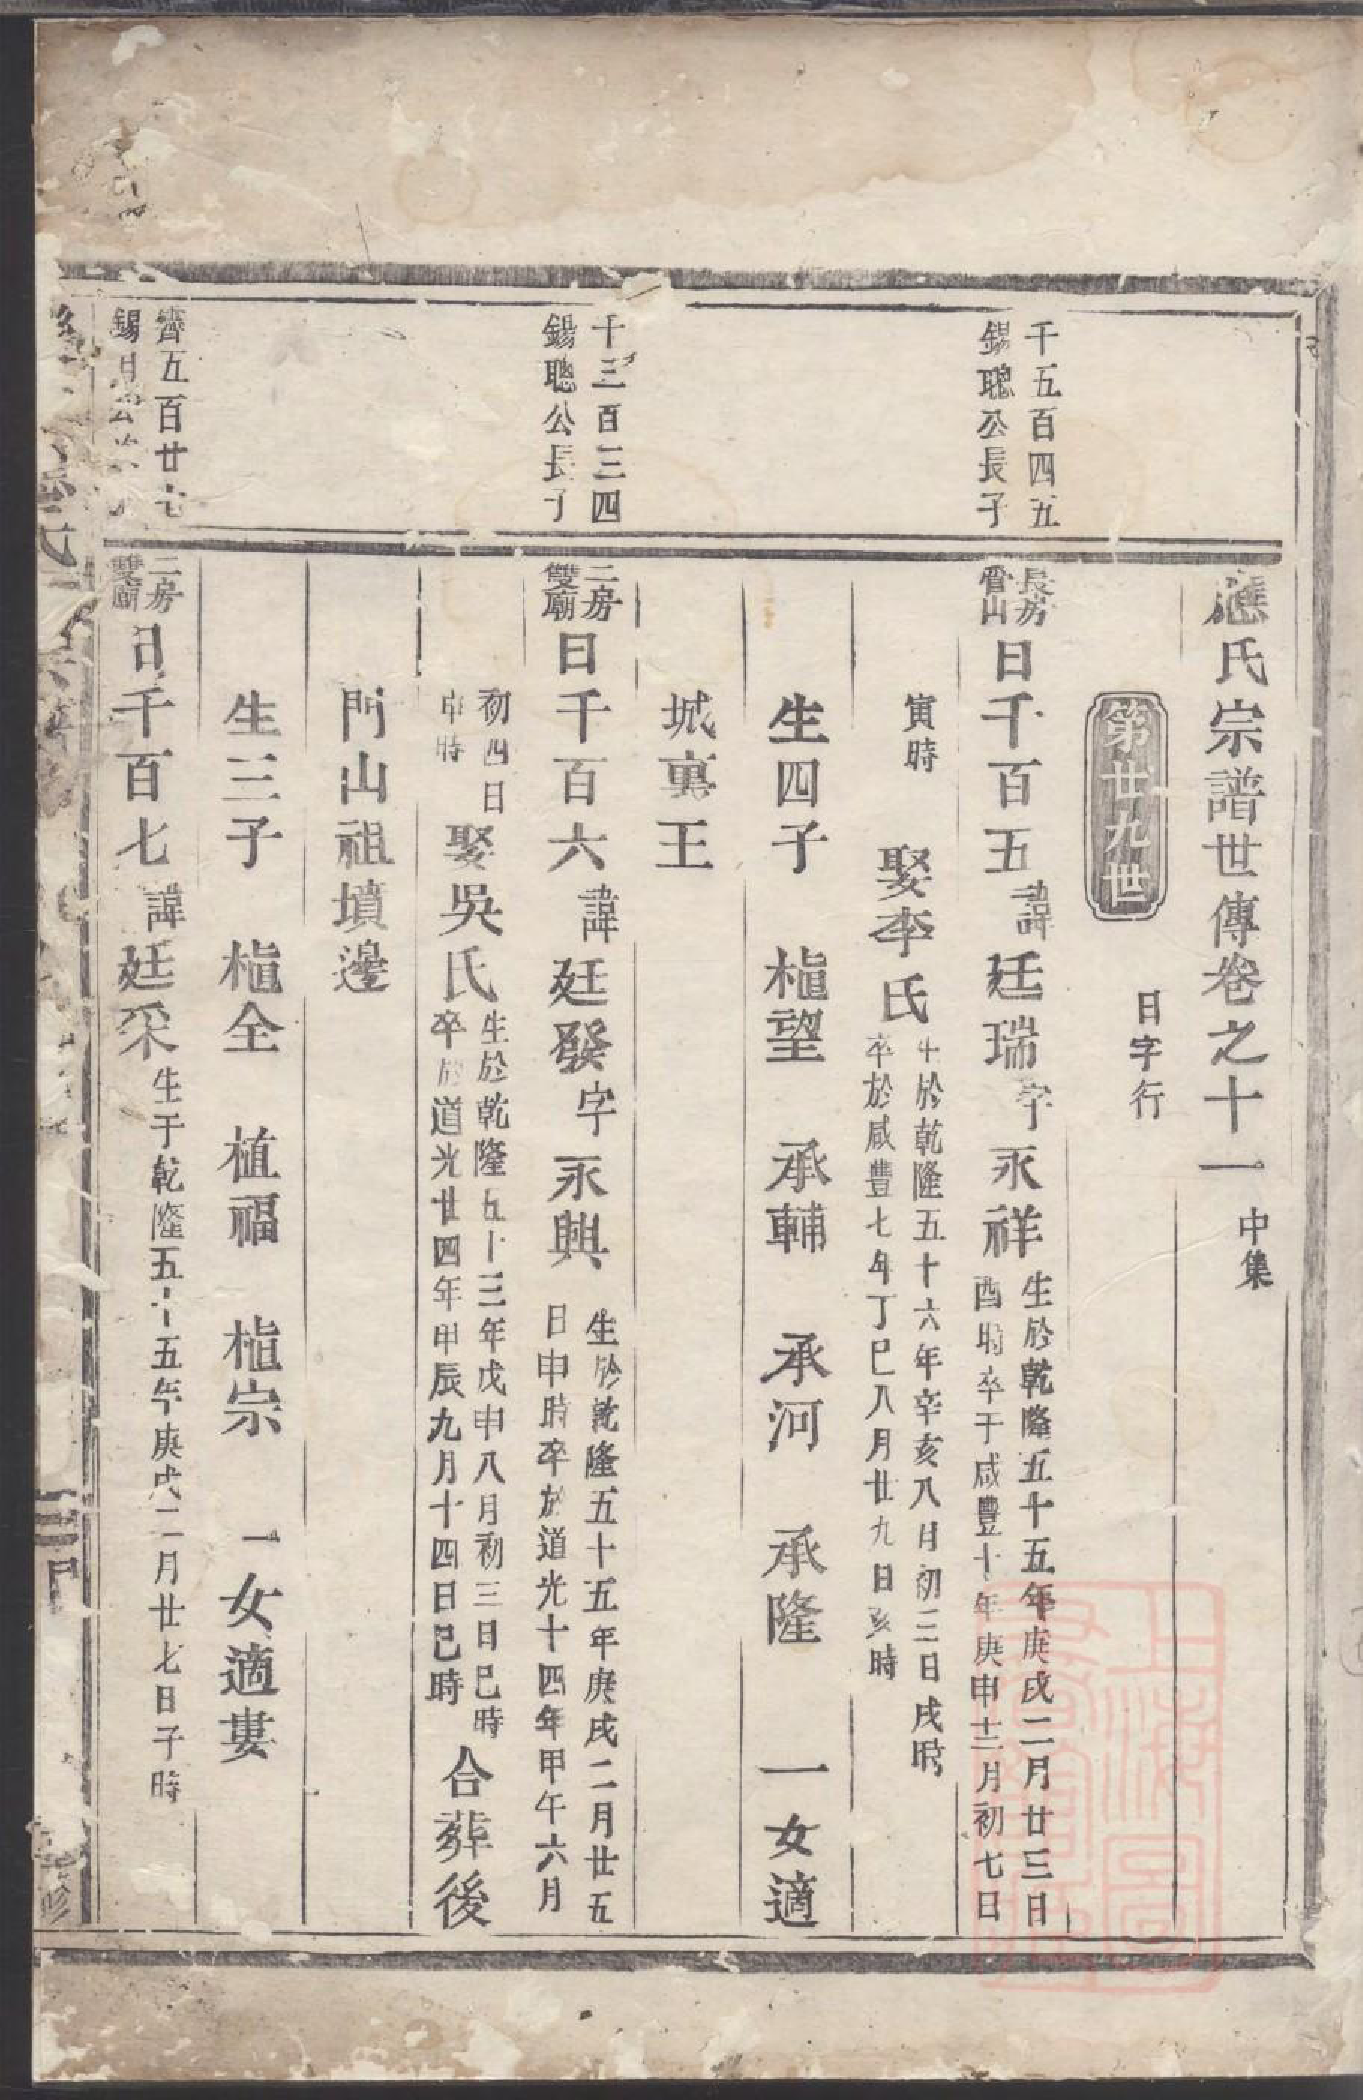 應氏宗譜世傳卷之十一 中集
第廿九世 日字行
千五百四五
錫聰公長子
長房
管山
日千百五 諱 廷瑞 字 永祥 生於乾隆五十五年庚戌二月廿三日
酉時卒于咸豐十年庚申十二月初七日
寅時 娶李氏 生於乾隆五十六年辛亥八月初三日戌時
卒於咸豐七年丁巳八月廿九日亥時
生四子 植望 承輔 承河 承隆 一女適
城裏王
千三百三四
錫聰公長子
二房
雙廟
日千百六 諱 廷發 字 永興 生於乾隆五十五年庚戌二月廿五
日申時卒於道光十四年甲午六月
初四日
申時
娶吳氏 生於乾隆五十三年戊申八月初三日巳時
卒於道光廿四年甲辰九月十四日巳時
合葬後
門山祖墳邊
生三子 植全 植福 植宗 一女適婁
齊五百廿七
錫
公
二房
雙廟
日千百七 諱 廷采 生于乾隆五十五年庚戌二月廿七日子時
上海圖書館藏